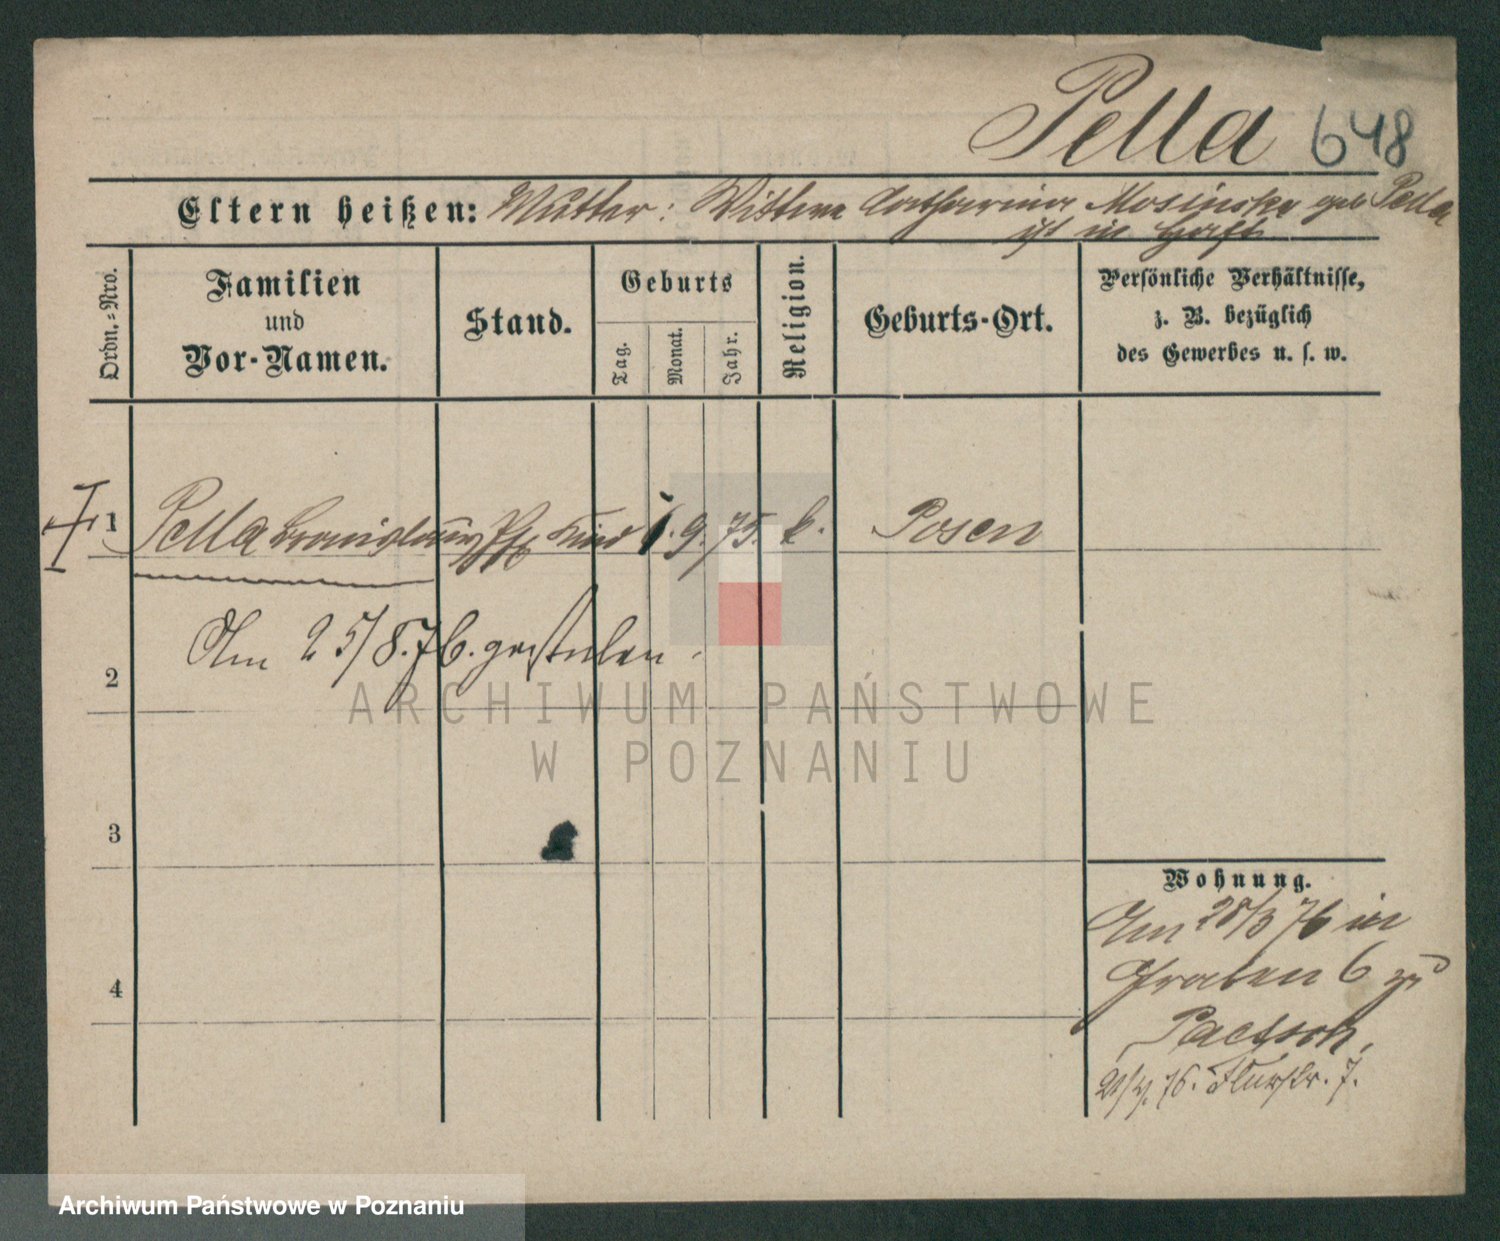 Pella 648
Eltern heißen: Mutter: Wittwe Catharina Mosinska geb Pella
ist in Haft
Ordn.-Nro.
Familien
und
Vor-Namen.
Stand.
Geburts
Tag.
Monat.
Jahr.
Religion.
Geburts-Ort.
Persönliche Verhältnisse,
z. B. bezüglich
des Gewerbes u. s. w.
1 Pella Kind 9. 75. k. Posen
Am 25/8.76. gestorben.
2
3
4
Wohnung.
Am 28/3 76 in
Graben 6 zu
76. Flurstr. 7.
ARCHIWUM PAŃSTWOWE
W POZNANIU
Archiwum Państwowe w Poznaniu